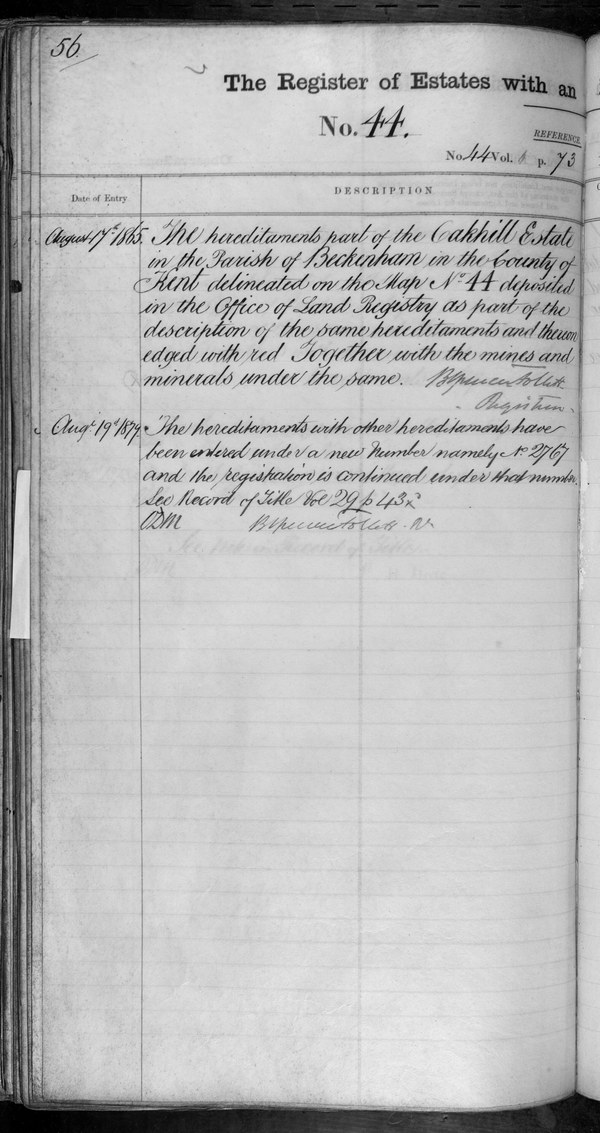 56
The Register of Estates with an
No. 44.
REFERENCE
No. 44 Vol. 6 p. 73
Date of Entry
DESCRIPTION
August 17th 1865. The hereditaments part of the Oakhill Estate
in the Parish of Beckenham in the County of
Kent delineated on the Map No 44 deposited
in the Office of Land Registry as part of the
description of the same hereditaments and thereon
edged with red Together with the mines and
minerals under the same. B Spencer Follett
Registrar
Augt 19th 1879. The hereditaments with other hereditaments have
been entered under a new Number namely No 2767
and the registration is continued under that number.
See Record of Title Vol 29 p 43
B Spencer Follett R